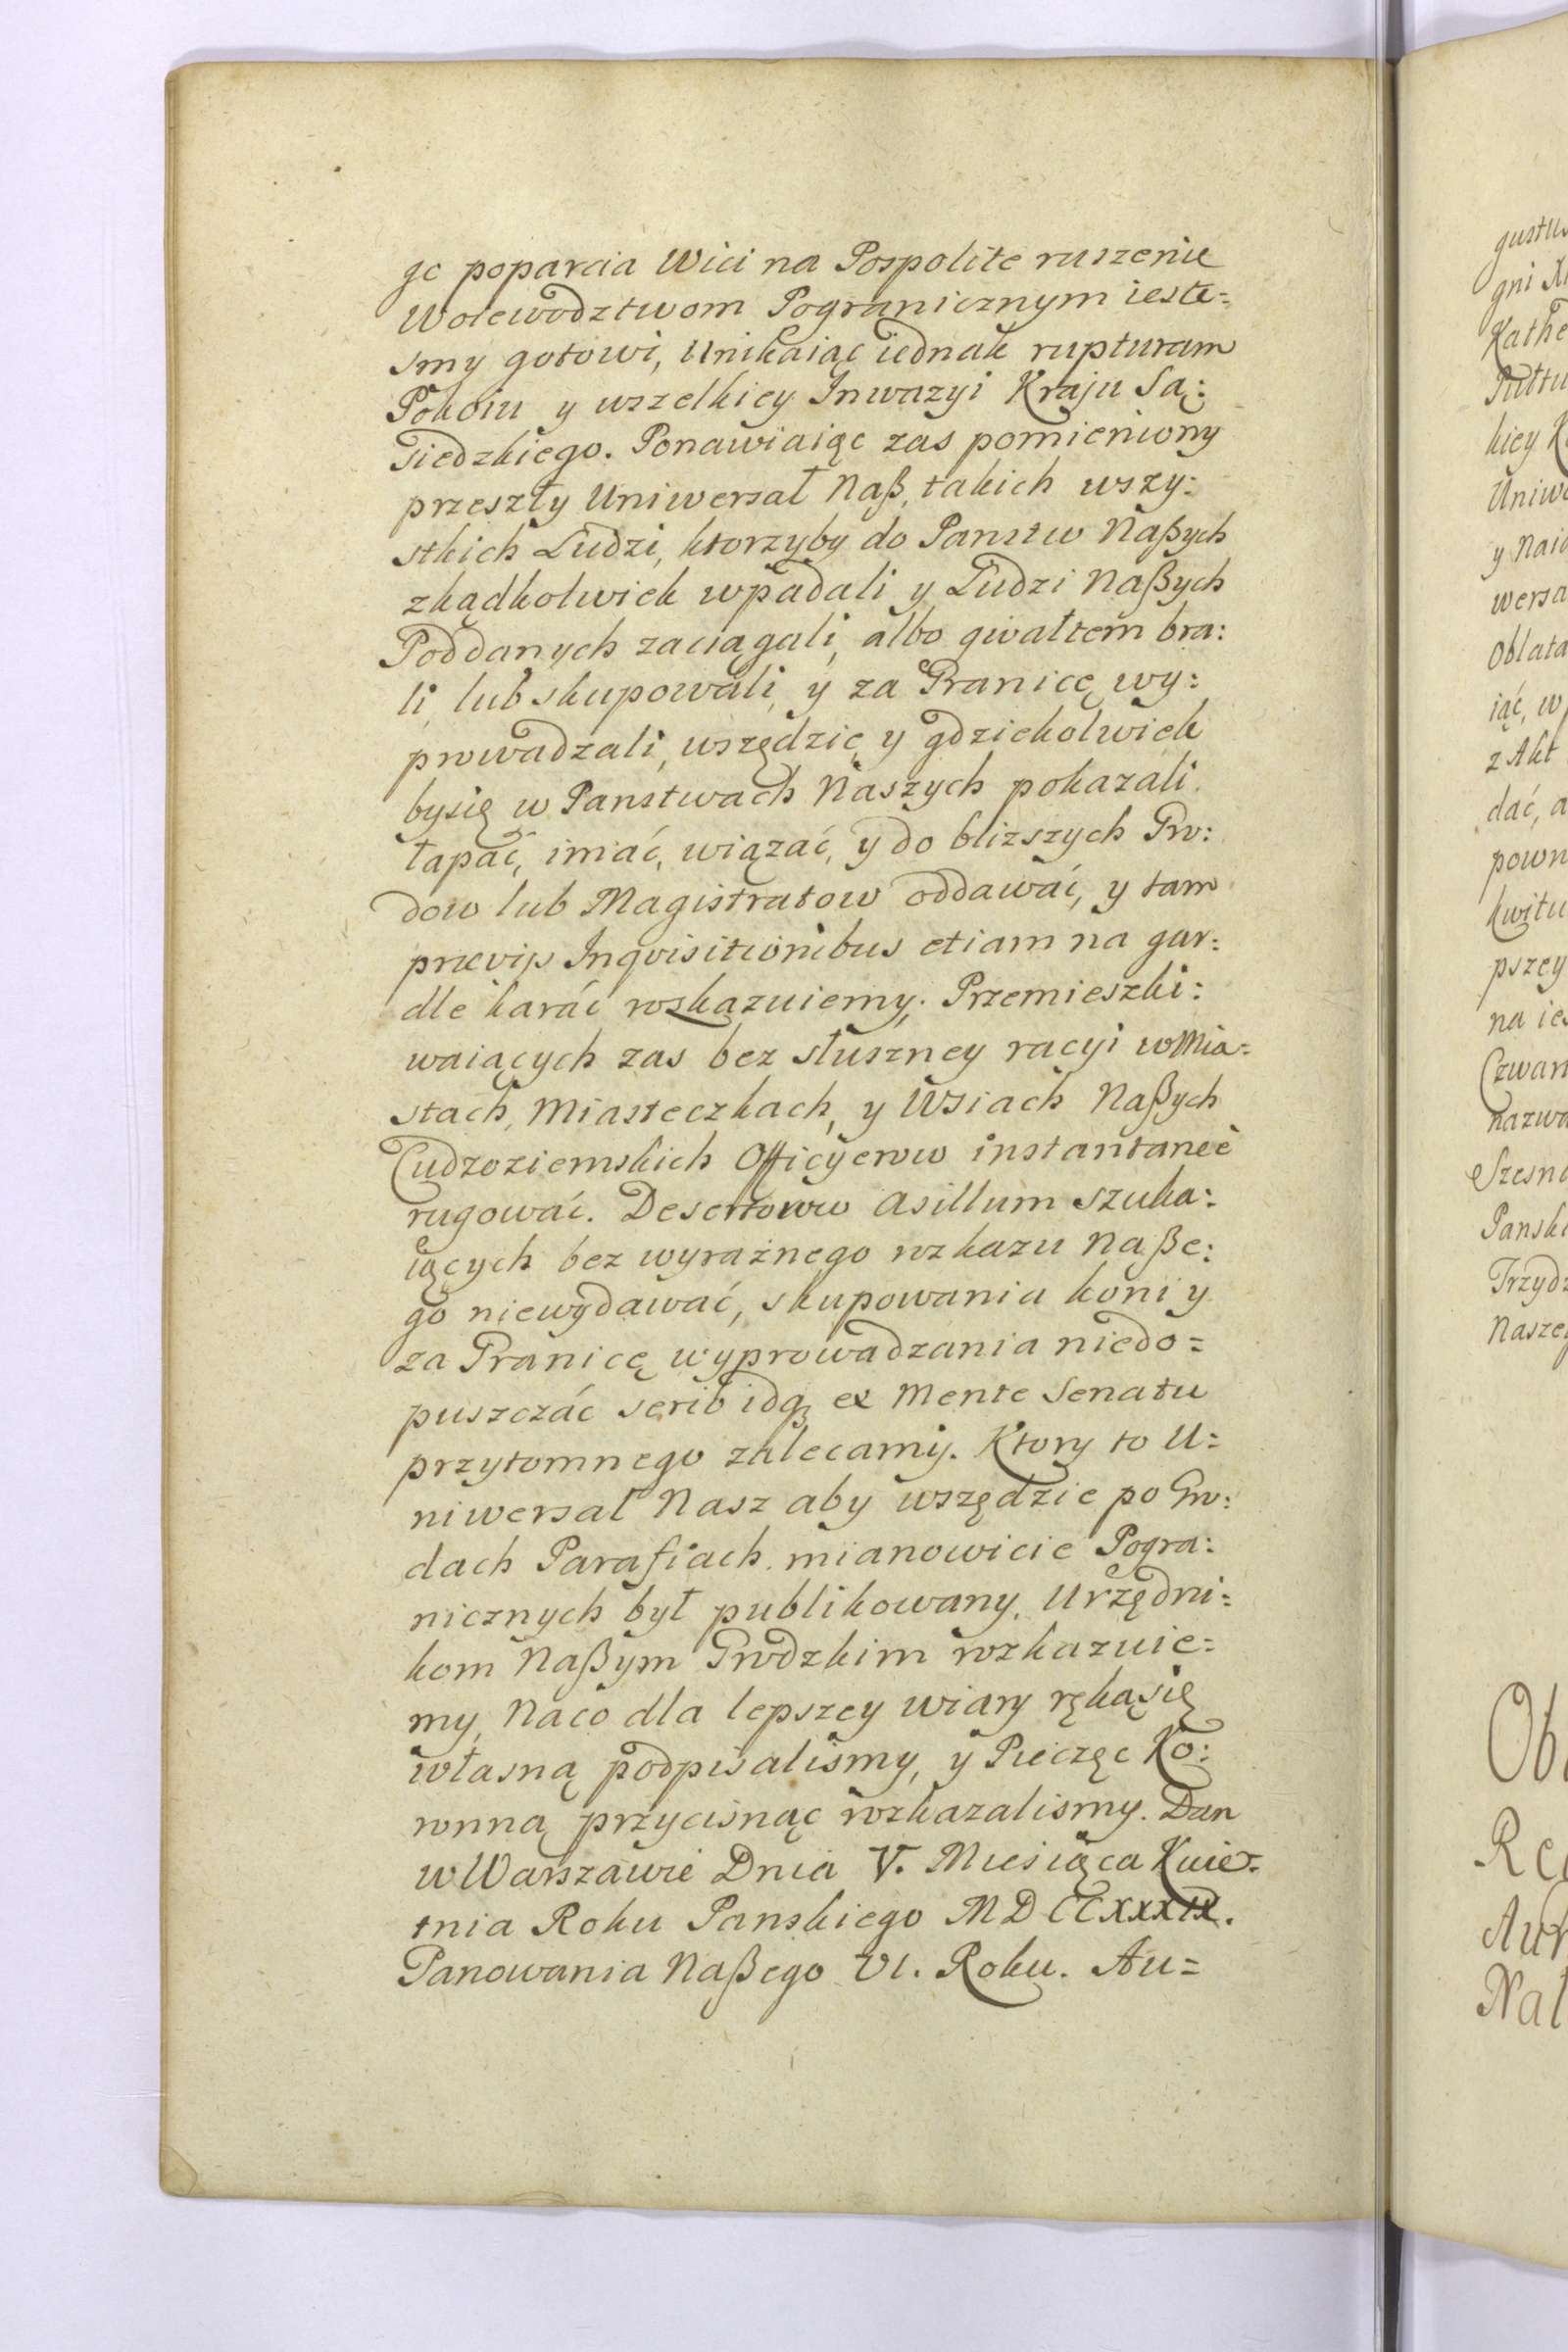 go poparcia Wici na Pospolite ruszenie
Woiewodztwom Pogranicznym ieste=
smy gotowi, Unikaiąc iednak rupturam
Pokoiu y wszelkiey Inwazyi Kraju Są:
siedzkiego. Ponawiaiąc zas pomieniony
przeszły Uniwersał Naß, takich wszy:
stkich Ludzi, ktorzyby do Panstw Naßych
zkądkolwiek wpadali y Ludzi Naßych
Poddanych zaciągali, albo gwałtem bra:
li, lub skupowali, y za Granicę wy:
prowadzali, wszędzie y gdziekolwiek
bysię w Panstwach Naszych pokazali
łapać, imać, wiązać, y do bliższych Gro:
dow lub Magistratow oddawać, y tam
prævijs Inqvisitionibus etiam na gar:
dle karać roskazuiemy. Przemieszki:
waiących zas bez słuszney racyi w Mia=
stach, Miasteczkach, y Wsiach Naßych
Cudzoziemskich Officyerow instantaneè
rugować. Desertorow Asillum szuka:
iących bez wyrażnego rozkazu Naße:
go niewydawać, skupowania koni y
za Granicę wyprowadzania niedo=
puszczać serio idq ex Mente Senatu
przytomnego zalecamy. Ktory to U=
niwersał Nasz aby wszędzie po Gro:
dach Parafiach mianowicie Pogra:
nicznych był publikowany, Urzędni:
kom Naßym Grodzkim rozkazuie=
my, Naco dla lepszey wiary rękąsię
własną podpisalismy, y Pieczęc Ko:
ronną przycisnąc rozkazalismy. Dan
w Warszawie Dnia V. Miesiąca Kwie=
tnia Roku Panskiego MDCCXXXIX.
Panowania Naßego VI. Roku. Au=
gustus
gni
Kathe
Pułtu
kiey
Uniwe
y Naid
wersa
Oblata
iąć, w
z Akt
dać, a
pown
kwitu
pszey
na ies
Czwart
nazwa
Szesna
Panski
Trzydz
Naszeg
Ob
Re
Nat